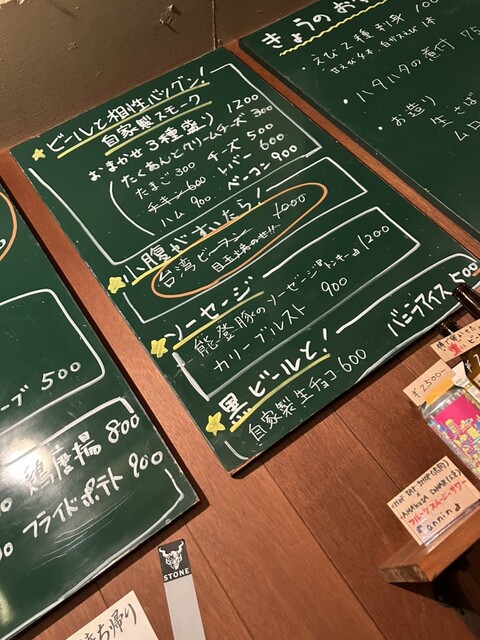 ビールと相性バツグン!
自家製スモーク
おまかせ3種盛り 1200
たくあんとクリームチーズ 300
たまご 300 チーズ 500
チキン 600 レバー 600
ハム 900 ベーコン 900
小腹がすいたら!
台湾ビーフン 1000
目玉土具のせ!!
ソーセージ
能登豚のソーセージ 1200
カリーブルスト 900
黒ビールと!
自家製生チョコ 600
バニラアイス 500
きょうのお
えび2種刺身 100
甘えび4本
ハタハタの煮付 75
お造り
生さば
ムロ
ーブ 500
鶏唐揚 800
フライドポテト 900
STONE
持ち帰り
¥2500-
フルーツスムージーサワー
anning